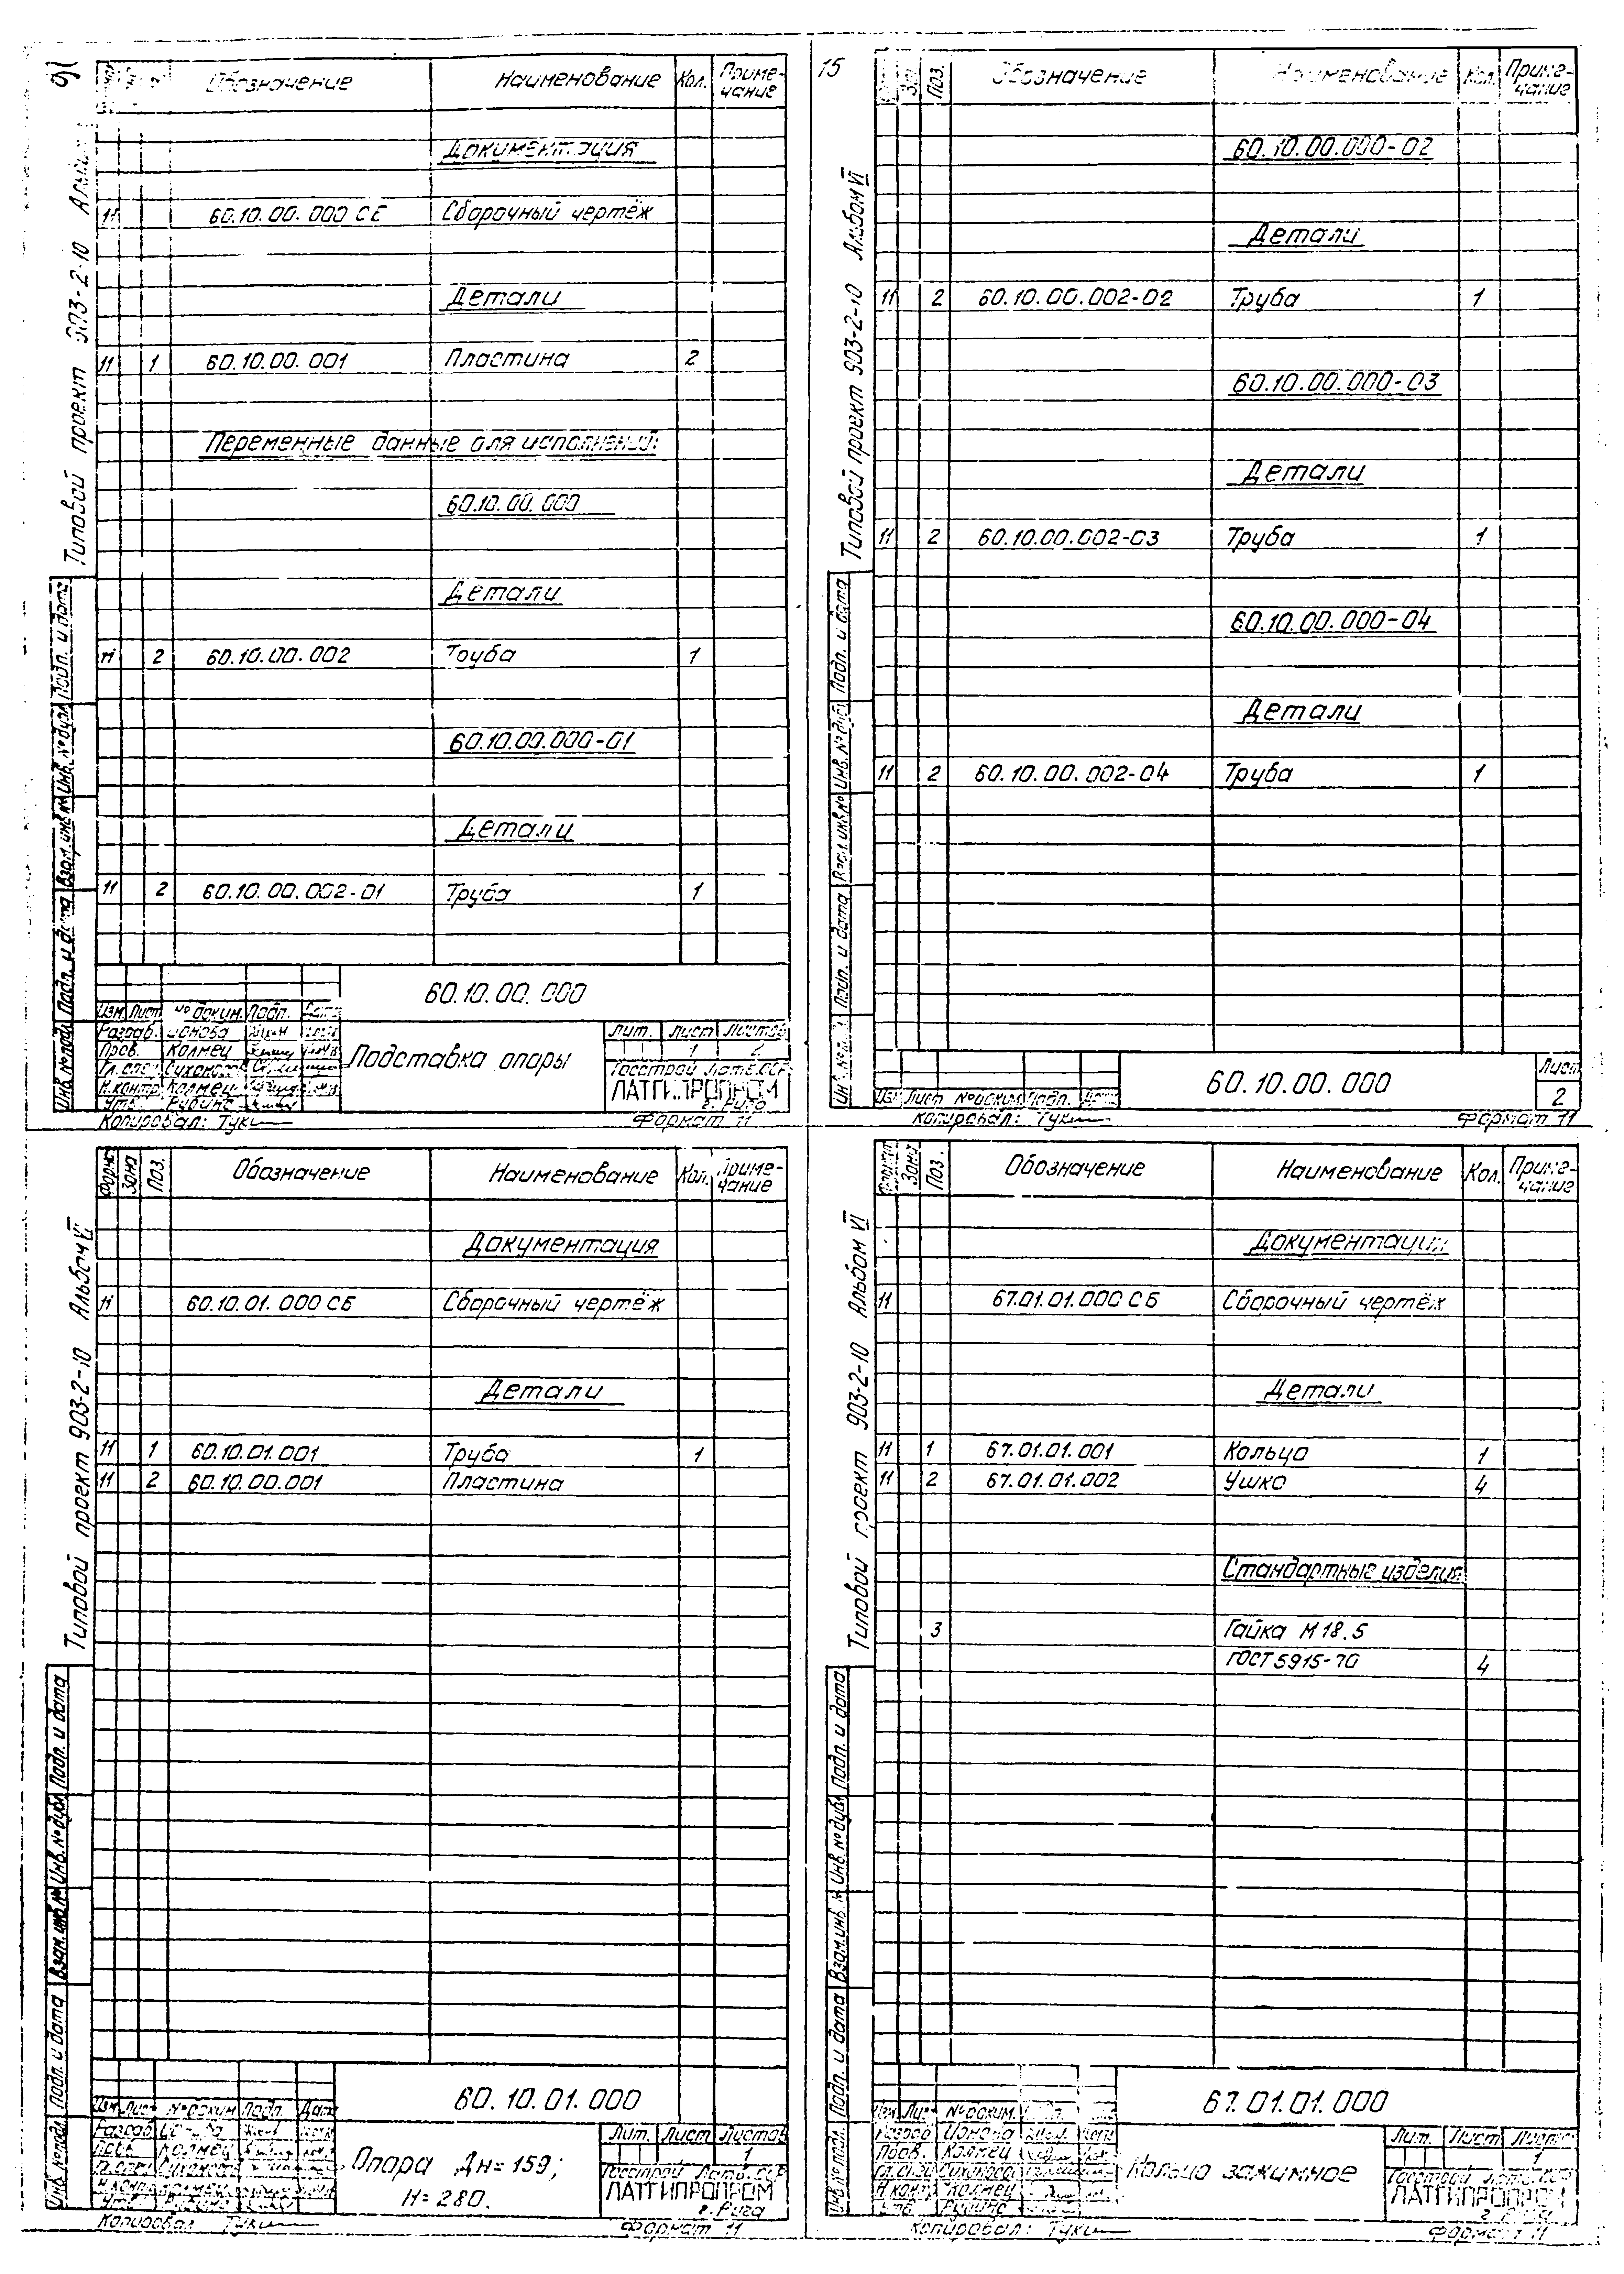 91
Обозначение Наименование Кол. Приме-
чание
Документация
11 60.10.00.000 СБ Сборочный чертёж
Детали
11 1 60.10.00.001 Пластина 2
Переменные данные для исполнений:
60.10.00.000
Детали
11 2 60.10.00.002 Труба 1
60.10.00.000-01
Детали
11 2 60.10.00.002-01 Труба 1
Типовой проект 903-2-10
Инв. № подл. Подп. и дата Взам. инв. № Инв. № дубл. Подп. и дата
60.10.00.000
Изм. Лист № докум. Подп. Дата
Разраб.
Пров. Колмец
Н.контр. Колмец
Утв. Рубинс
Подставка опоры
Лит. Лист Листов
1 2
Госстрой Латв.ССР
ЛАТГИПРОПРОМ
г. Рига
Копировал: Формат 11
15
Поз. Обозначение Наименование Кол. Приме-
чание
60.10.00.000-02
Детали
11 2 60.10.00.002-02 Труба 1
60.10.00.000-03
Детали
11 2 60.10.00.002-03 Труба 1
60.10.00.000-04
Детали
11 2 60.10.00.002-04 Труба 1
Типовой проект 903-2-10 Альбом VI
Подп. и дата Взам. инв. № Инв. № дубл. Подп. и дата
Изм. Лист № докум. Подп. Дата
60.10.00.000
Лист
2
Копировал: Формат 11
Формат Зона Поз. Обозначение Наименование Кол. Приме-
чание
Документация
11 60.10.01.000 СБ Сборочный чертёж
Детали
11 1 60.10.01.001 Труба 1
11 2 60.10.00.001 Пластина
Типовой проект 903-2-10 Альбом VI
Инв. № подл. Подп. и дата Взам. инв. № Инв. № дубл. Подп. и дата
60.10.01.000
Изм. Лист № докум. Подп. Дата
Разраб.
Пров. Колмец
Опора Дн=159;
Н=280.
Лит. Лист Листов
1
Госстрой Латв.ССР
ЛАТГИПРОПРОМ
г. Рига
Копировал Формат 11
Формат Зона Поз. Обозначение Наименование Кол. Приме-
чание
Документация
11 67.01.01.000 СБ Сборочный чертёж
Детали
11 1 67.01.01.001 Кольцо 1
11 2 67.01.01.002 Ушко 4
Стандартные изделия
3 Гайка М18.5
ГОСТ 5915-70 4
Типовой проект 903-2-10 Альбом VI
Инв. № подл. Подп. и дата Взам. инв. № Инв. № дубл. Подп. и дата
67.01.01.000
Изм. Лист № докум.
Разраб.
Пров. Колмец
Н.контр. Колмец
Утв. Рубинс
Кольцо зажимное
Лит. Лист Листов
1
Госстрой Латв.ССР
ЛАТГИПРОПРОМ
Копировал: Формат 11